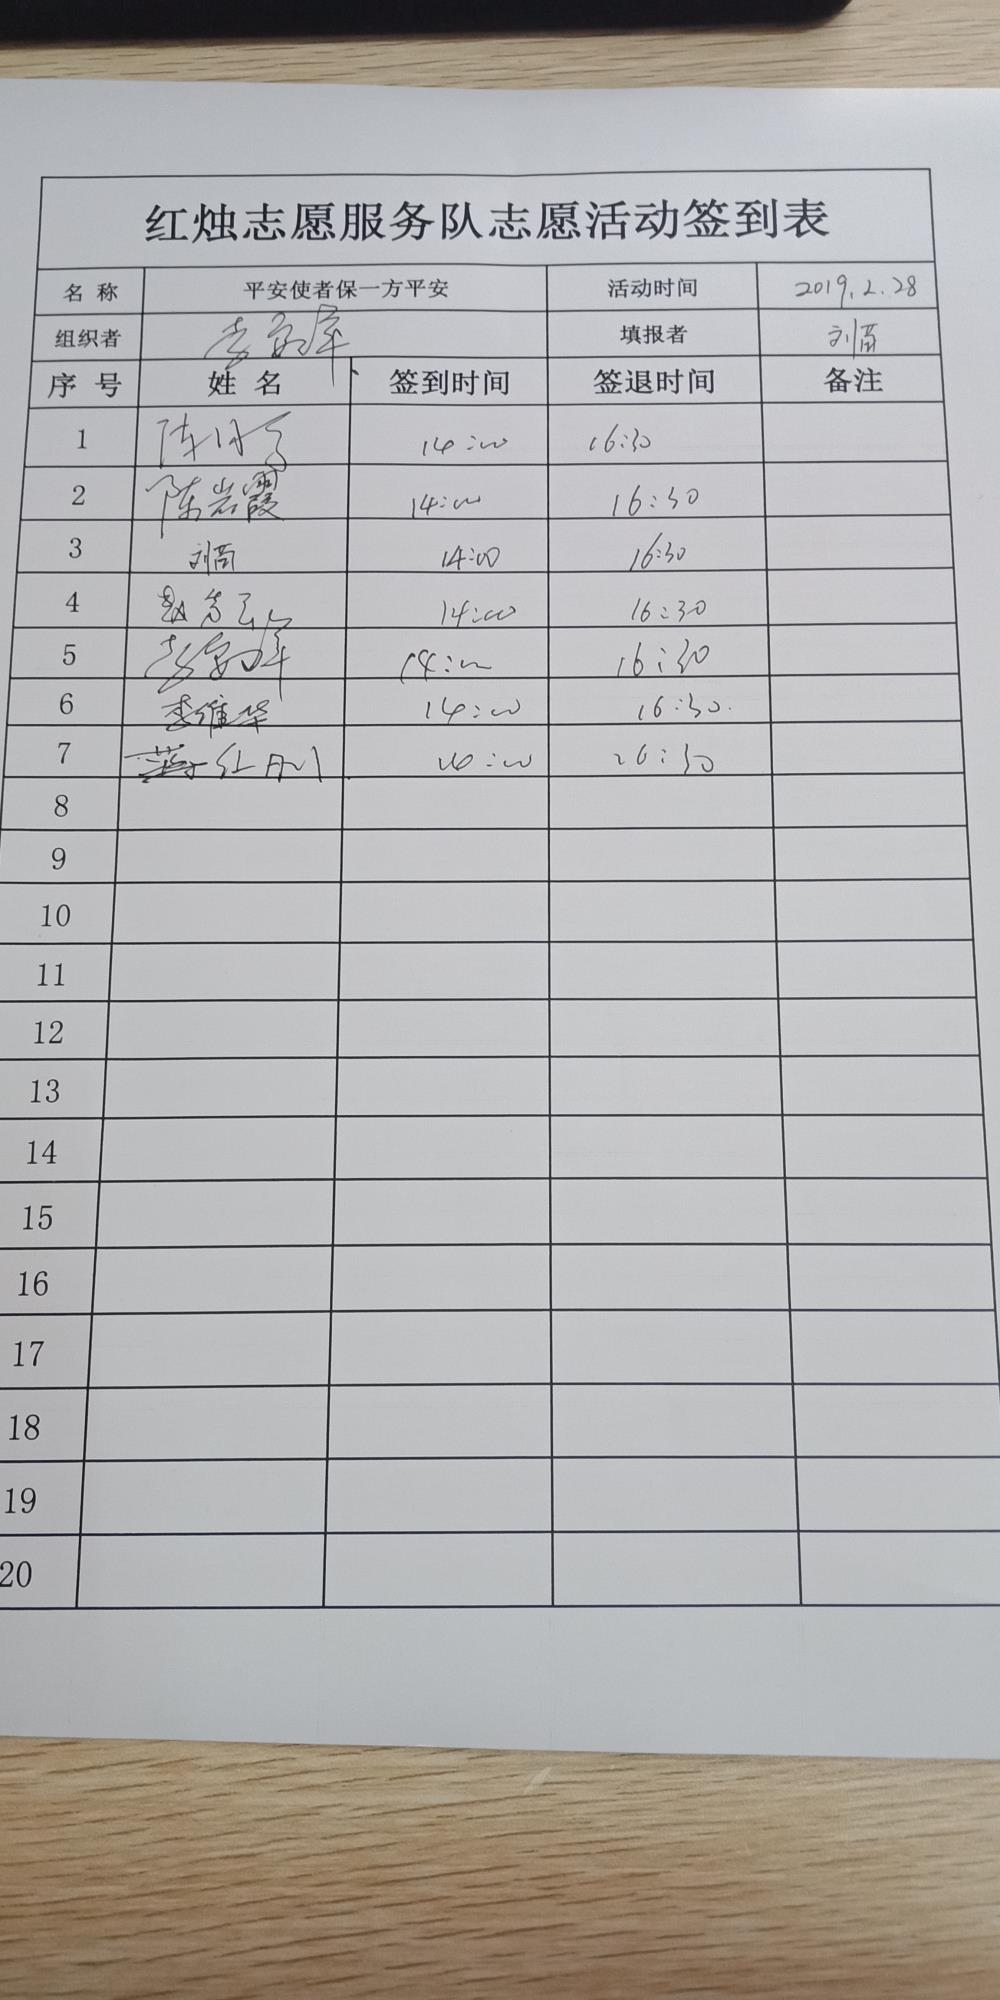 红烛志愿服务队志愿活动签到表
名 称 平安使者保一方平安 活动时间 2019.2.28
组织者 填报者 刘
序 号 姓 名 签到时间 签退时间 备注
1 陈 14:00 16:30
2 陈岩霞 14:00 16:30
3 刘 14:00 16:30
4 赵 14:00 16:30
5 李 14:00 16:30
6 李维华 14:00 16:30
7 红 14:00 16:30
8
9
10
11
12
13
14
15
16
17
18
19
20